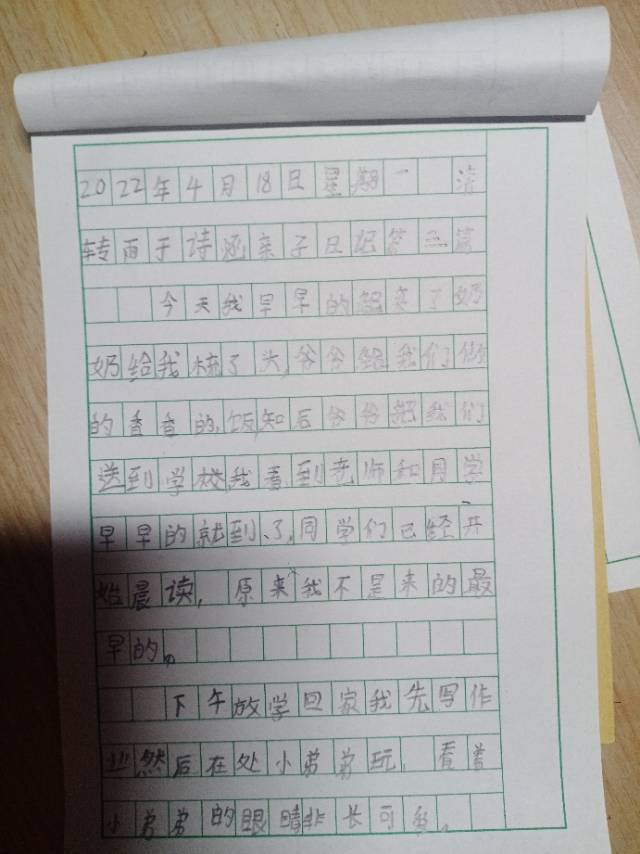 2022年4月18日星期一
转雨于诗涵亲子日记第三篇
今天我早早的起来了奶
奶给我梳了头,爷爷给我们做
的香香的,饭,知后爷爷把我们
送到学校,我看到老师和同学
早早的就到、了,同学们已经开
始晨读,原来我不是来的最
早的。
下午放学回家我先写作
业然后在处小弟弟玩,看着
小弟弟的眼睛非长可爱。